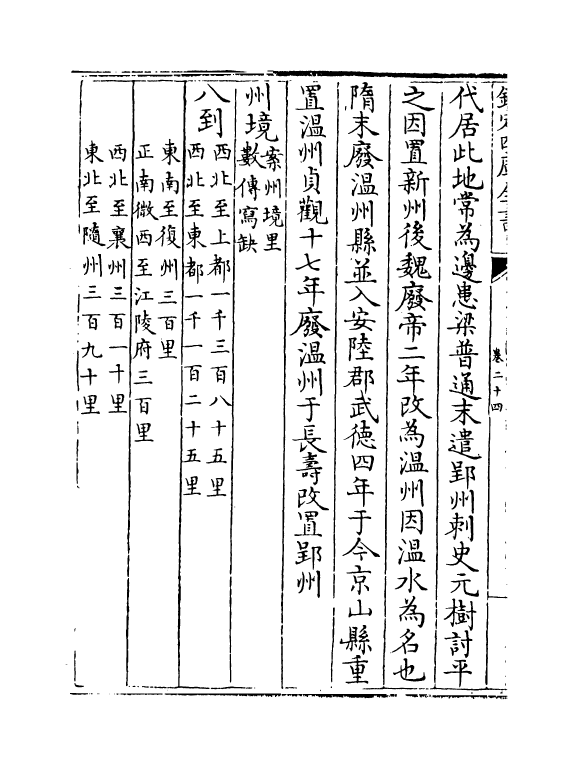 欽定四庫全書
卷二十四
代居此地常為邊患梁普通末遣郢州刺史元樹討平
之因置新州後魏廢帝二年改為温州因温水為名也
隋末廢温州縣並入安陸郡武德四年于今京山縣重
置温州貞觀十七年廢温州于長壽改置郢州
州境案州境里
數傳寫缺
八到西北至上都一千三百八十五里
西北至東都一千一百二十五里
東南至復州三百里
正南微西至江陵府三百里
西北至襄州三百一十里
東北至隨州三百九十里